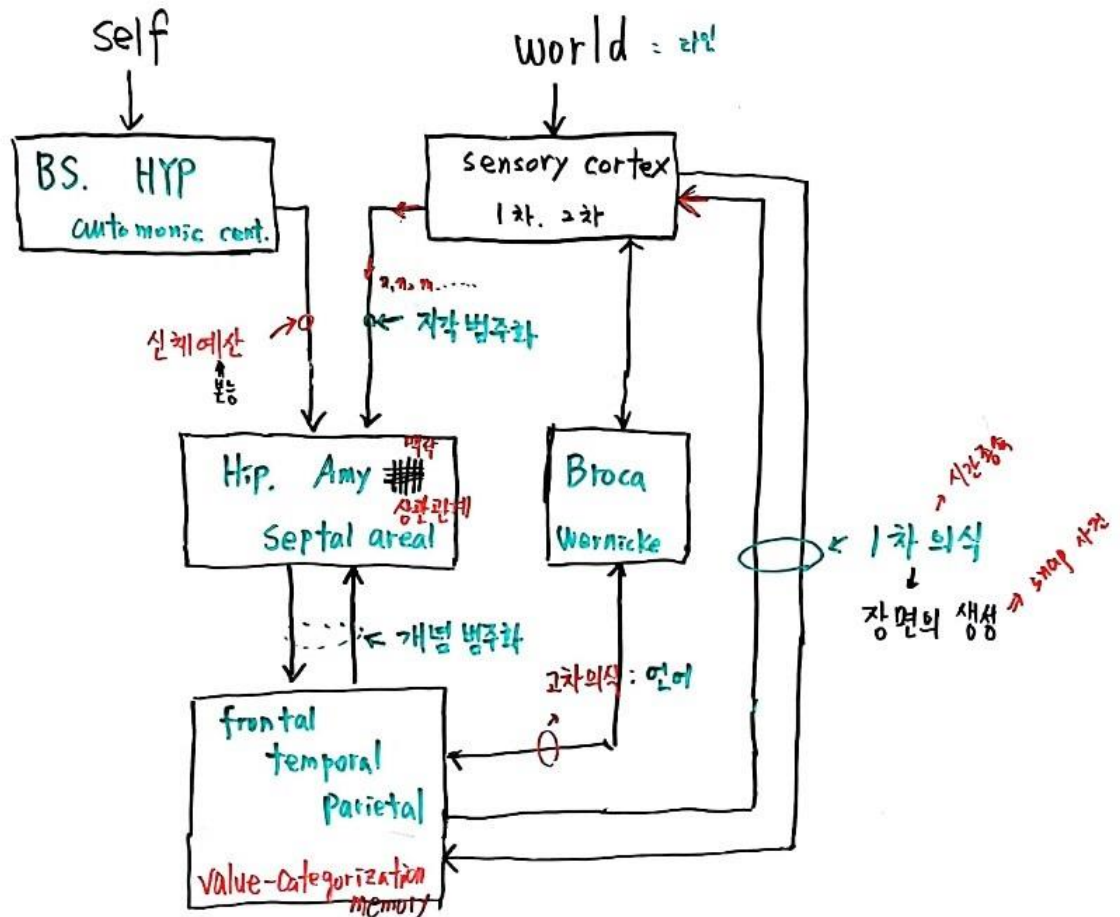 self
world : 타인
BS. HYP
automonic cent.
sensory cortex
1차. 2차
신체예산
본능
지각 범주화
Hip. Amy
맥락
상관관계
septal areal
Broca
Wernicke
시간종속
1차 의식
장면의 생성
snap 사진
개념 범주화
고차의식 : 언어
frontal
temporal
parietal
value-categorization
memory